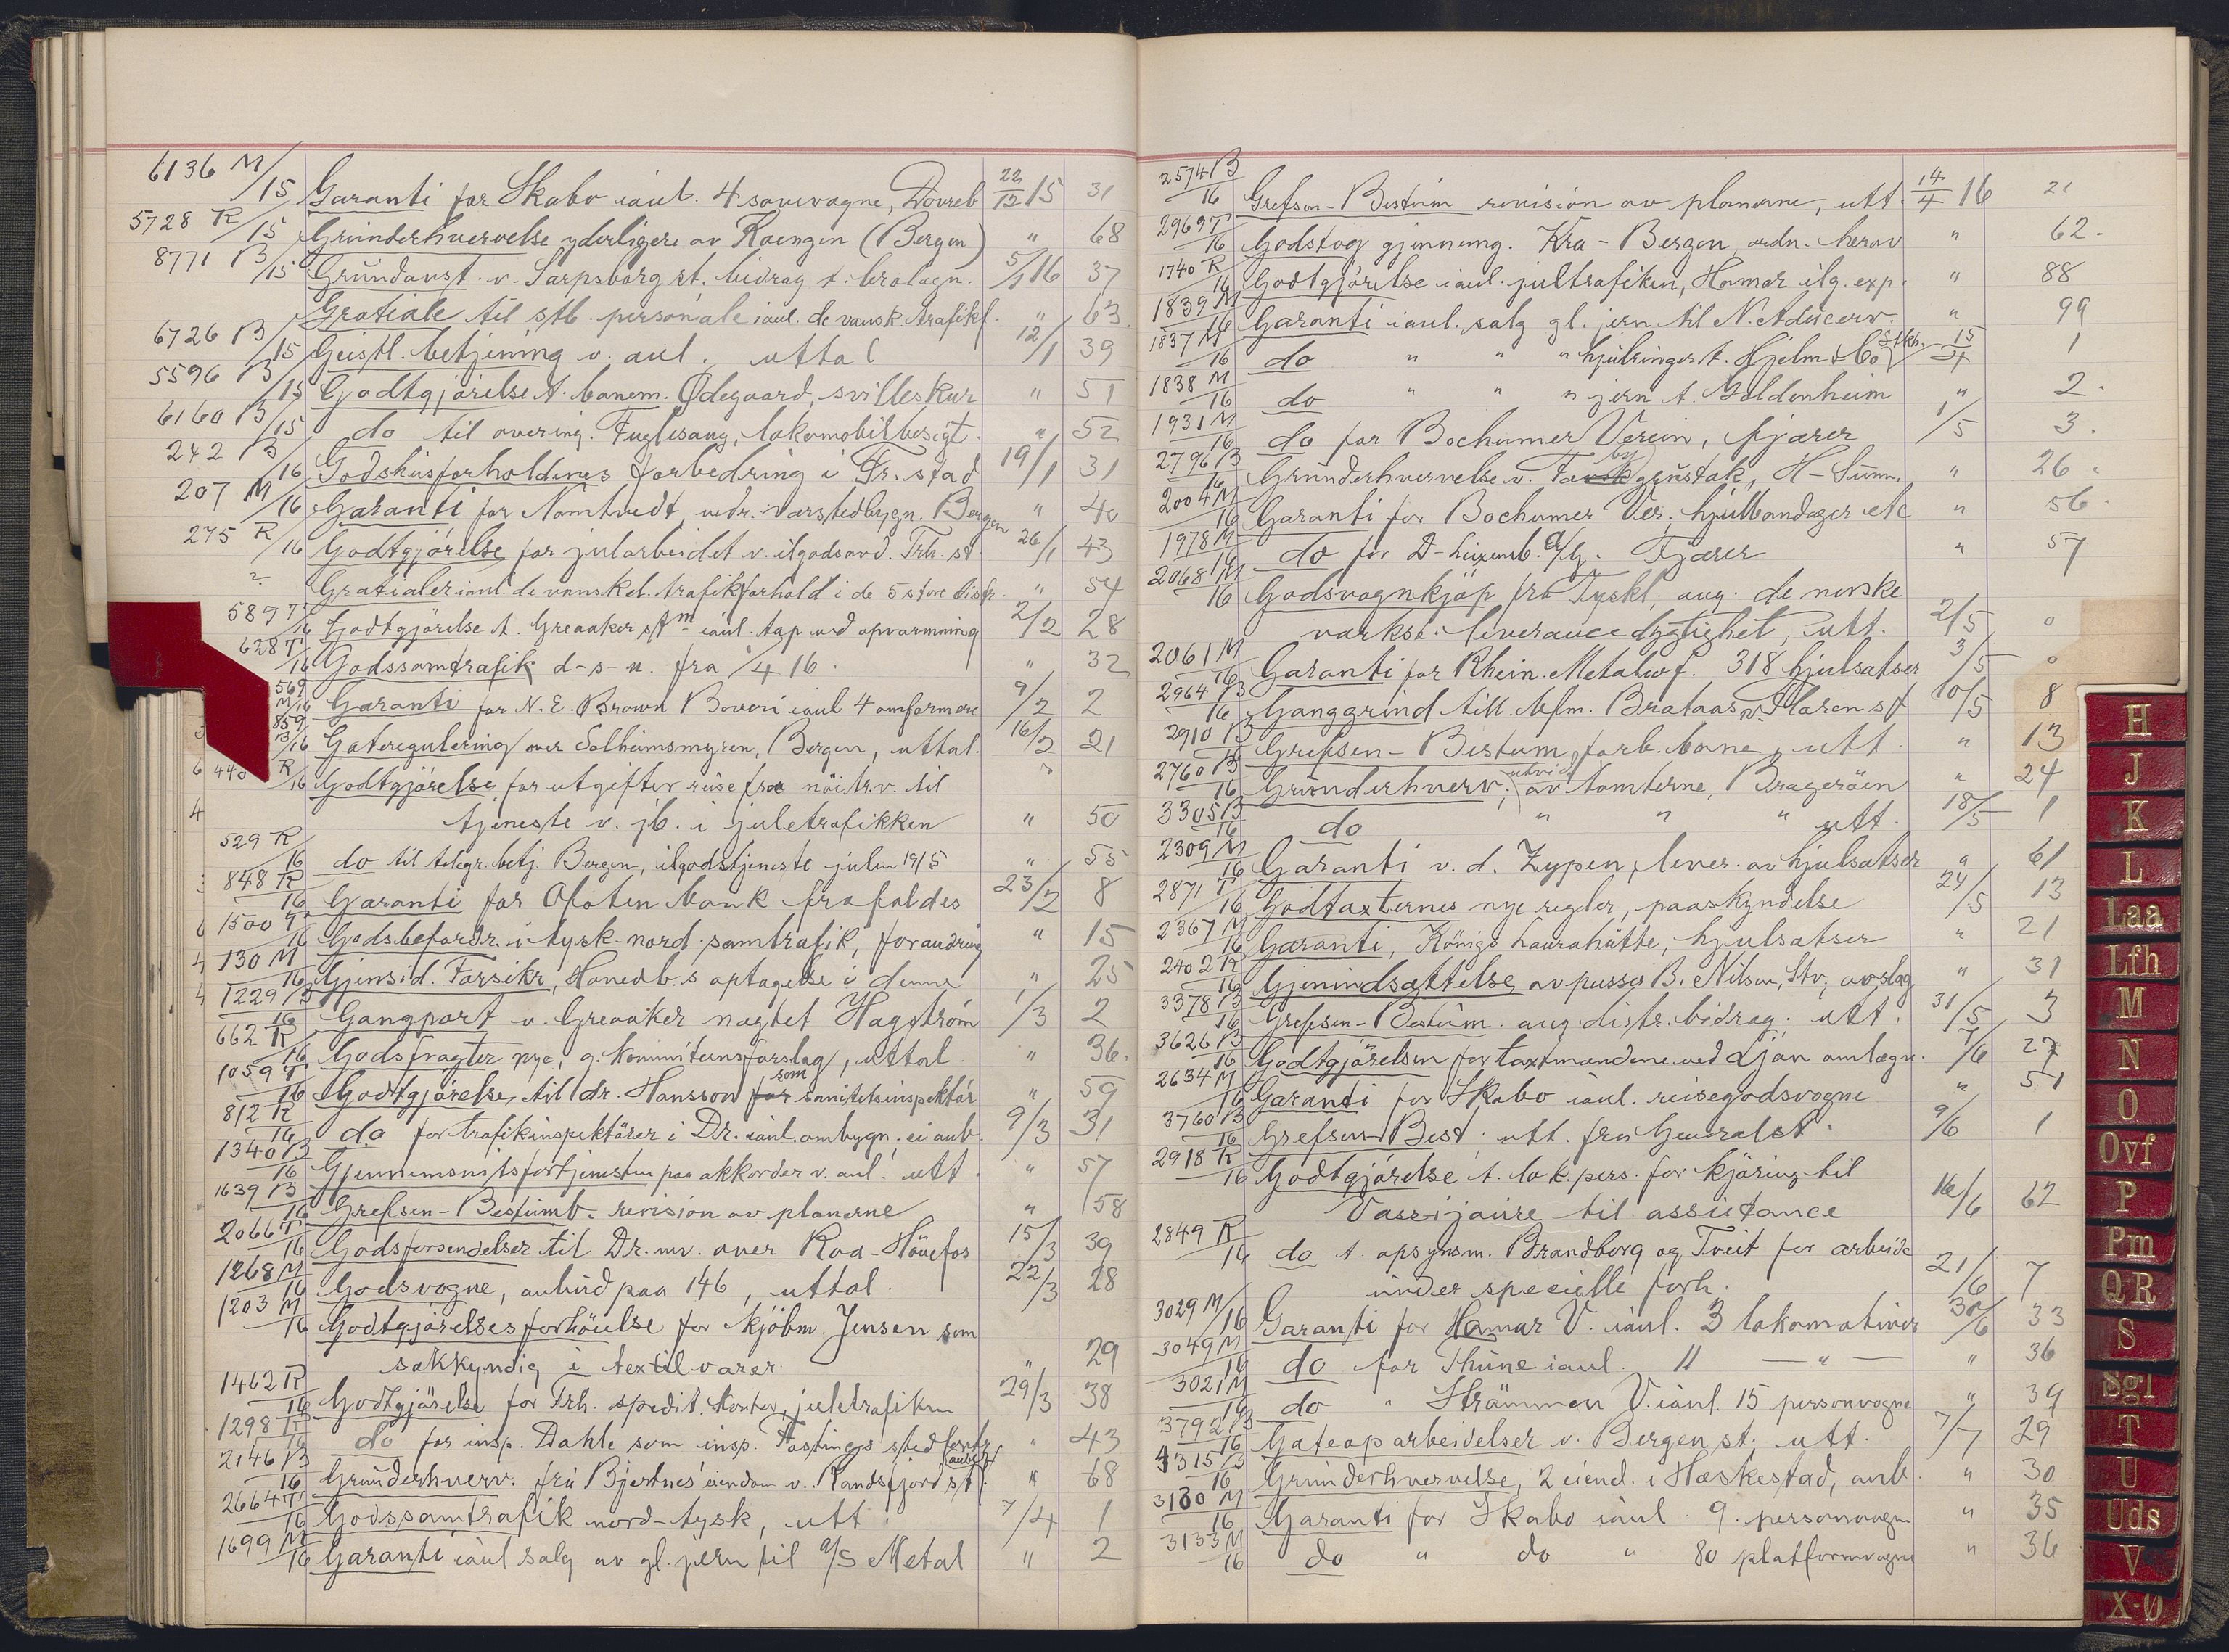 6136 M/15 Garanti for Skabo ianl. 4 sovevogne, Dovreb 22/12 15 31
5728 R/15 Grunderhvervelse yderligere av Kaengen (Bergen) " 68
8771 B/15 Grundavst. v. Sarpsborg st. bidrag t. brolægn. 5/1 16 37
Gratiale til stb. personale ianl. de vansk. trafikf. " 63
6726 B/15 Geistl. betjening v. anl. uttal 12/1 39
5596 B/15 Godtgjörelse t. banem. Ødegaard, svilleskur " 51
6160 B/15 do til overing. Fuglesang, lokomobilbesigt. " 52
242 B/16 Godshusforholdenes forbedring i Fr.stad 19/1 31
207 M/16 Garanti for Nomtvedt, vedr. varstedbygn. Bergen " 40
275 R/16 Godtgjörelse for julearbeidet v. ilgodsavd. Trh. st. 26/1 43
? Gratialer ianl. de vanskel. trafikforhold i de 5 store distr. " 54
589 T/16 Godtgjörelse t. Greaaker stm ianl. tap ved opvarmning 2/2 28
628 T/16 Godssamtrafik d-s-n. fra 1/4 16. " 32
569 M/16 Garanti for N. E. Brown Boveri ianl 4 omformere 9/2 2
859 B/16 Gateregulering over Solheimsmyren, Bergen, uttal. 16/2 21
440 R/16 Godtgjörelse for utgifter reise fra nöitr.v. til "
tjeneste v. jb. i juletrafikken " 50
529 R/16 do til telegr. betj. Bergen, ilgodstjeneste julen 1915 " 55
848 R/16 Garanti for Ofoten bank frafaldes 23/2 8
1500 T/16 Godsbefordr. i tysk-nord. samtrafik, forandring " 15
130 M/16 Gjensid. Forsikr, Hovedb.s optagelse i denne " 25
1229 B/16 Gangport v. Greaaker nægtet Hagström 1/3 2
662 R/16 Godsfragter nye, g. kommiteens forslag, uttal " 36.
1059 T/16 Godtgjörelse til dr. Hansson som sanitetsinspektör " 59
812 R/16 do for trafikinspektörer i Dr. ianl. ombygn. ei anb. 9/3 31
1340 B/16 Gjennemsnitsfortjenesten paa akkorder v. anl. utt " 57
1639 B/16 Grefsen-Bestumb. revision av planerne " 58
2066 T/16 Godsforsendelser til Dr. nv. over Roa-Hönefos 15/3 39
1268 M/16 Godsvogne, anbud paa 146, uttal. 22/3 28
1203 M/16 Godtgjörelsesforhöielse for kjöbm. Jensen som
sakkyndig i textilvarer " 29
1462 R/16 Godtgjörelse for Trh. spedit. kontor, juletrafiken 29/3 38
1298 R/16 do for insp. Dahle som insp. Fastings stedfortr. " 43
2146 B/16 Grunderhverv. fra Bjertnes eiendom v. Randsfjord st. anbef. " 68
2664 T/16 Godssamtrafik nord-tysk, utt. 7/4 1
1699 M/16 Garanti ianl salg av gl. jern til A/S Metal " 2
2574 B/16 Grefsen-Bestum revision av planerne, utt. 14/4 16 21
2969 T/16 Godstog gjennemg. Kra-Bergen, ordn. herav " 62.
1740 R/16 Godtgjörelse ianl. jultrafiken, Hamar ilg. exp. " 88
1839 M/16 Garanti ianl. salg gl. jern til N. " 99
1837 M/16 do " " " hjulringer t. Hjelm & Co Stkh. 15/4 1
1838 M/16 do " " " jern t. Goldenheim " 2.
1931 M/16 do for Bochumer Verein, fjærer 1/5 3.
2796 B/16 Grunderhvervelse v. Fa by grustak, H-Sunn. " 26.
2004 M/16 Garanti for Bochumer Ver. hjulbandager etc " 56.
1978 M/16 do for D-Luxemb. A/G. Fjærer " 57
2068 M/16 Godsvognkjöp fra Tyskl. ang. de norske
værkst. leverancedygtighet, utt. 2/5
2061 M/16 Garanti for Rhein. Metalwf. 318 hjulsatser 3/5
2964 B/16 Ganggrind till. bfm. Brataas v. Skaren st 10/5 8
2910 B/16 Grefsen-Bestum forb. bane, utt. " 13
2760 B/16 Grunderhverv. utvid. av tomterne, Brageröen " 24
3305 B/16 do " " " utt. 18/5 1
2309 M/16 Garanti v. d. Zypen, lever. av hjulsatser " 61
2871 T/16 Godtaxternes nye regler, paaskyndelse 24/5 13
2367 M/16 Garanti, Königs Laurahütte, hjulsatser " 21
2402 R/16 Gjenindsættelse av pusser B. Nilsen, Stv., avslag " 31
3378 B/16 Grefsen-Bestum. ang. distr. bidrag. utt. 31/5 3
3626 B/16 Godtgjörelsen for taxtmændene ved Ljan omlægn. 7/6 27
2634 M/16 Garanti for Skabo ianl. reisegodsvogne " 51
3760 B/16 Grefsen-Best. utt. fra Generalst. 9/6 1
2918 R/16 Godtgjörelse t. lok. pers. for kjöring til
Vassijaure til assistance 16/6 62
2849 R/16 do t. opsynsm. Brandborg og Tveit for arbeide
under specielle forh. 21/6 7
3029 M/16 Garanti for Hamar V. ianl. 3 lokomotiver 30/6 33
3049 M/16 do for Thune ianl. 11 — " — " 36
3021 M/16 do " Strömmen V. ianl. 15 personvogne " 39
3792 B/16 Gateoparbeidelser v. Bergen st. utt. 7/7 29
4315 B/16 Grunderhvervelse, 2 eiend. i Hæskestad, anb. " 30
3130 M/16 Garanti for Skabo ianl. 9. personvogn " 35
3133 M/16 do " do " 80 platformvogne " 36
H
J
K
L
Laa
Lfh
M
N
O
Ovf
P
Pm
QR
S
Sgl
T
U
Uds
V
X-Ø